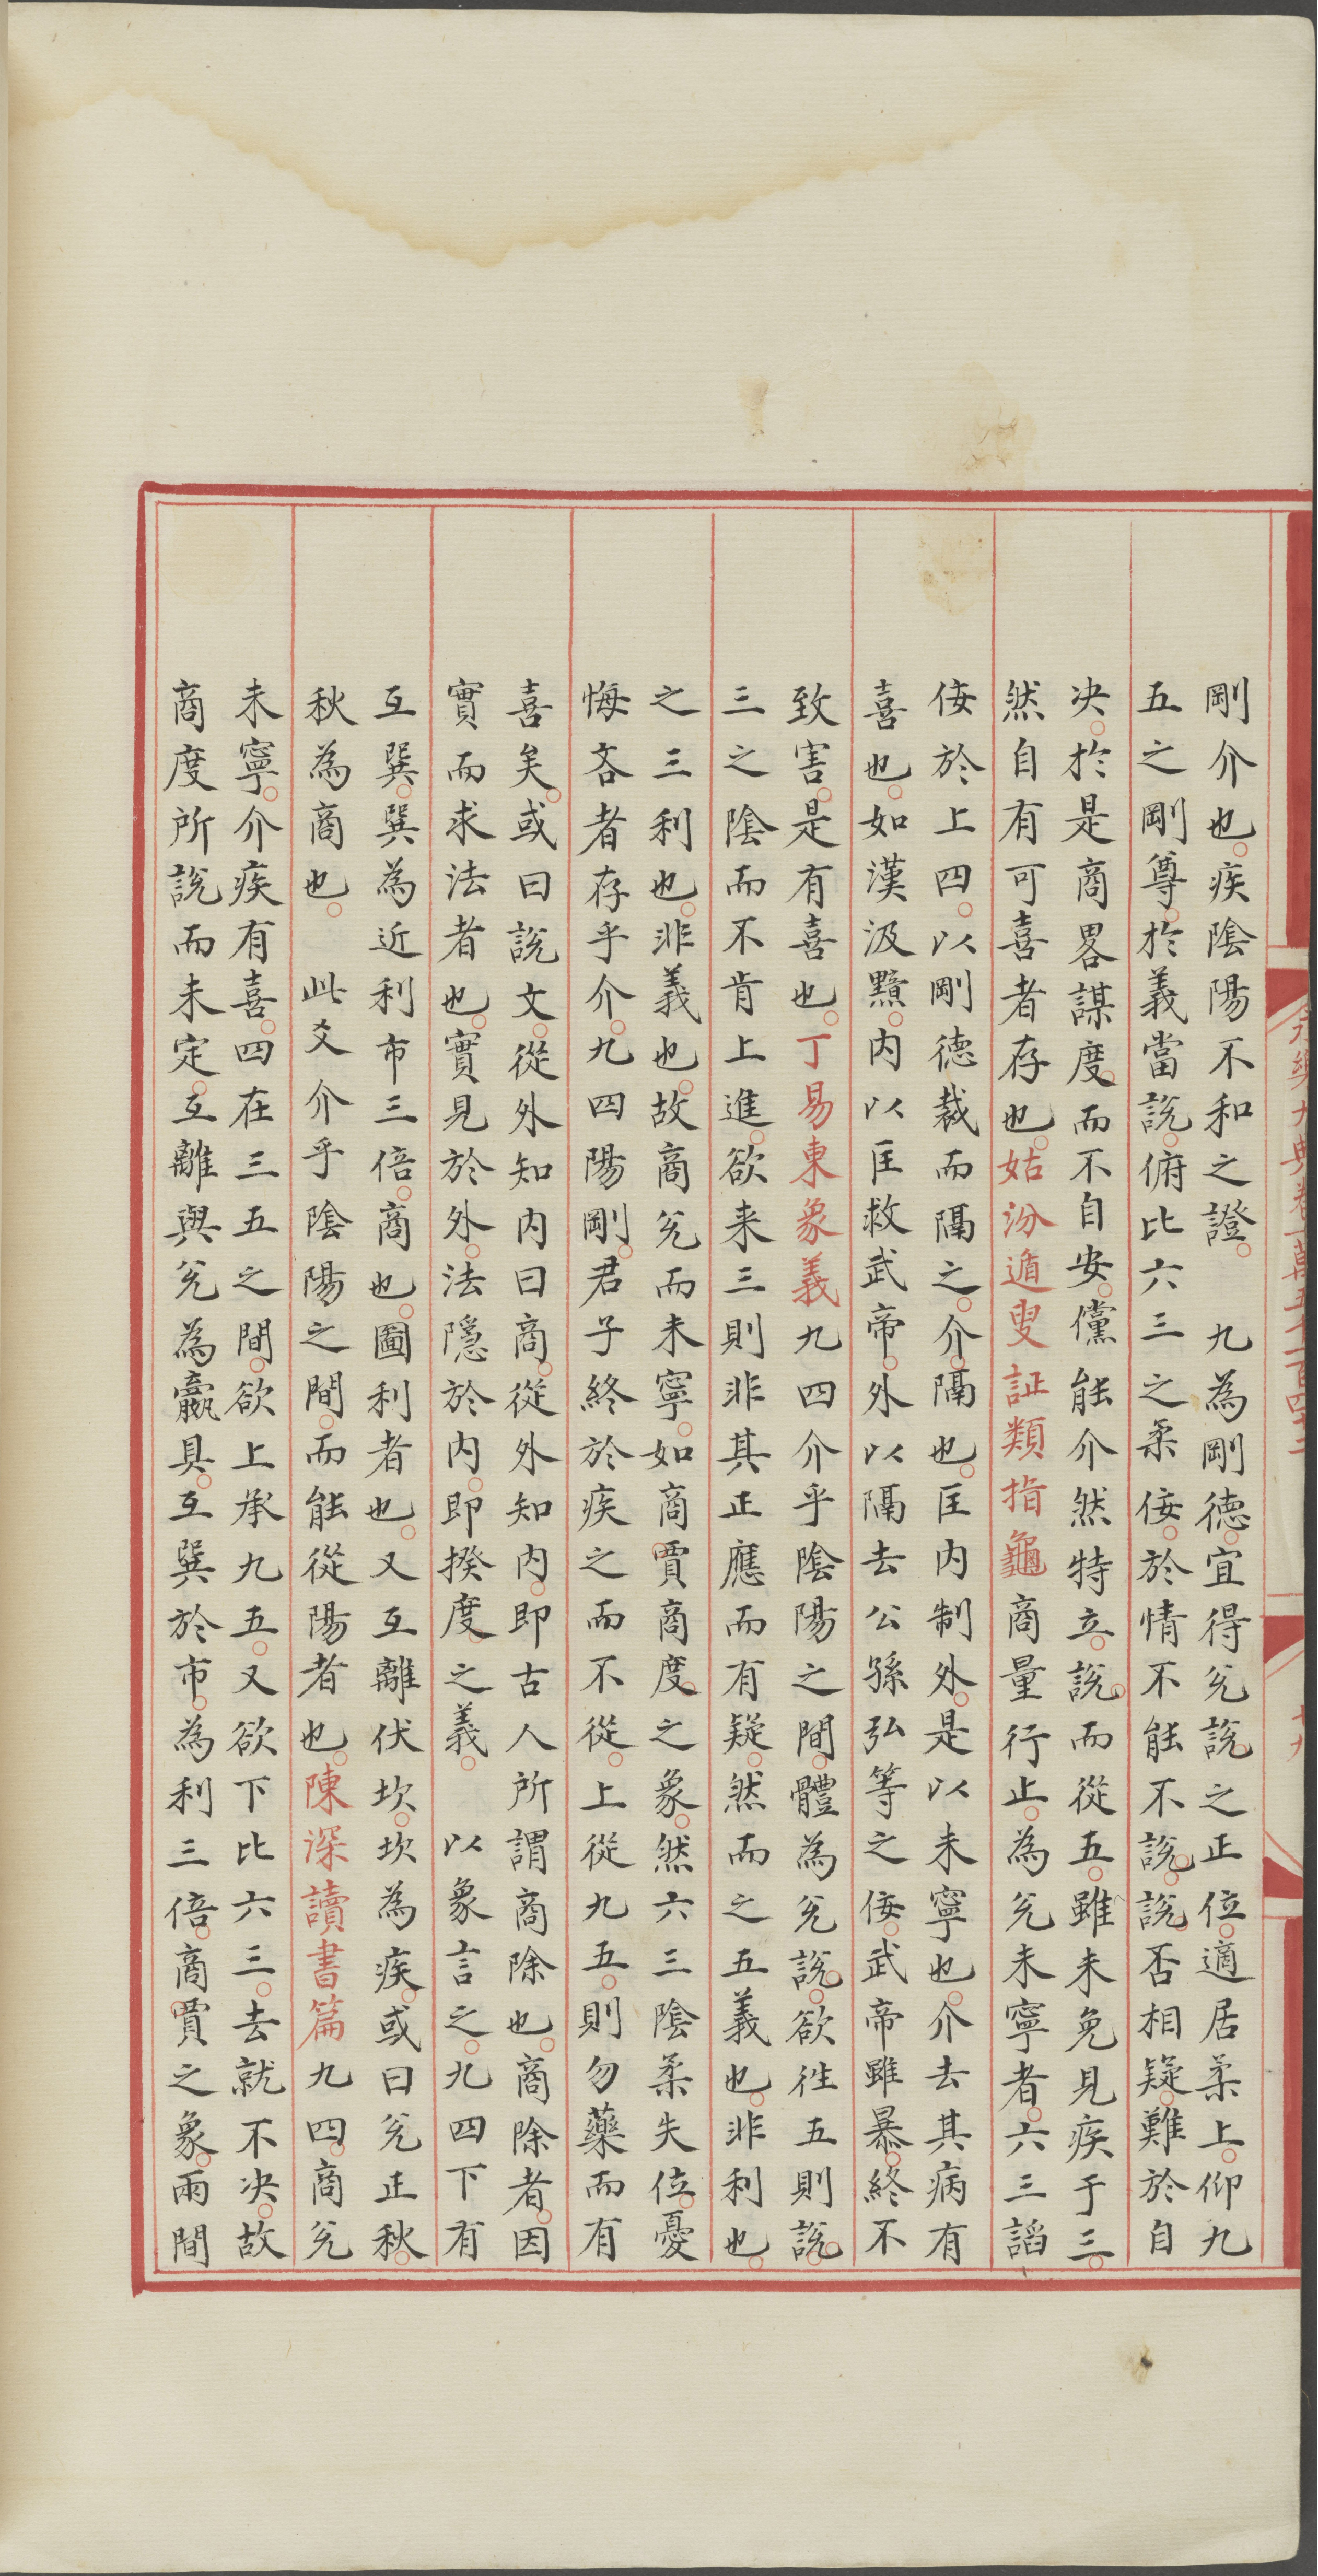 永樂大典卷一萬五千一百四十二
十九
剛介也疾陰陽不和之證　九為剛德宜得兊說之正位適居柔上仰九
五之剛尊於義當說俯比六三之柔佞於情不能不說說否相疑難於自
决於是商畧謀度而不自安儻能介然特立說而從五雖未免見疾于三
然自有可喜者存也姑汾遁叟証類指龜商量行止為兊未寧者六三諂
佞於上四以剛德裁而隔之介隔也匡内制外是以未寧也介去其病有
喜也如漢汲黯内以匡救武帝外以隔去公孫弘等之佞武帝雖暴終不
致害是有喜也丁易東象義九四介乎陰陽之間體為兊說欲徃五則說
三之陰而不肯上進欲来三則非其正應而有疑然而之五義也非利也
之三利也非義也故商兊而未寧如商賈商度之象然六三陰柔失位憂
悔吝者存乎介九四陽剛君子終於疾之而不從上從九五則勿藥而有
喜矣或曰說文從外知内曰商從外知内即古人所謂商除也商除者因
實而求法者也實見於外法隱於内即揆度之義　以象言之九四下有
互巽巽為近利市三倍商也圖利者也又互離伏坎坎為疾或曰兊正秋
秋為商也　此爻介乎陰陽之間而能從陽者也陳深讀書篇九四商兊
未寧介疾有喜四在三五之間欲上承九五又欲下比六三去就不决故
商度所說而未定互離與兊為臝具互巽於市為利三倍商賈之象兩間